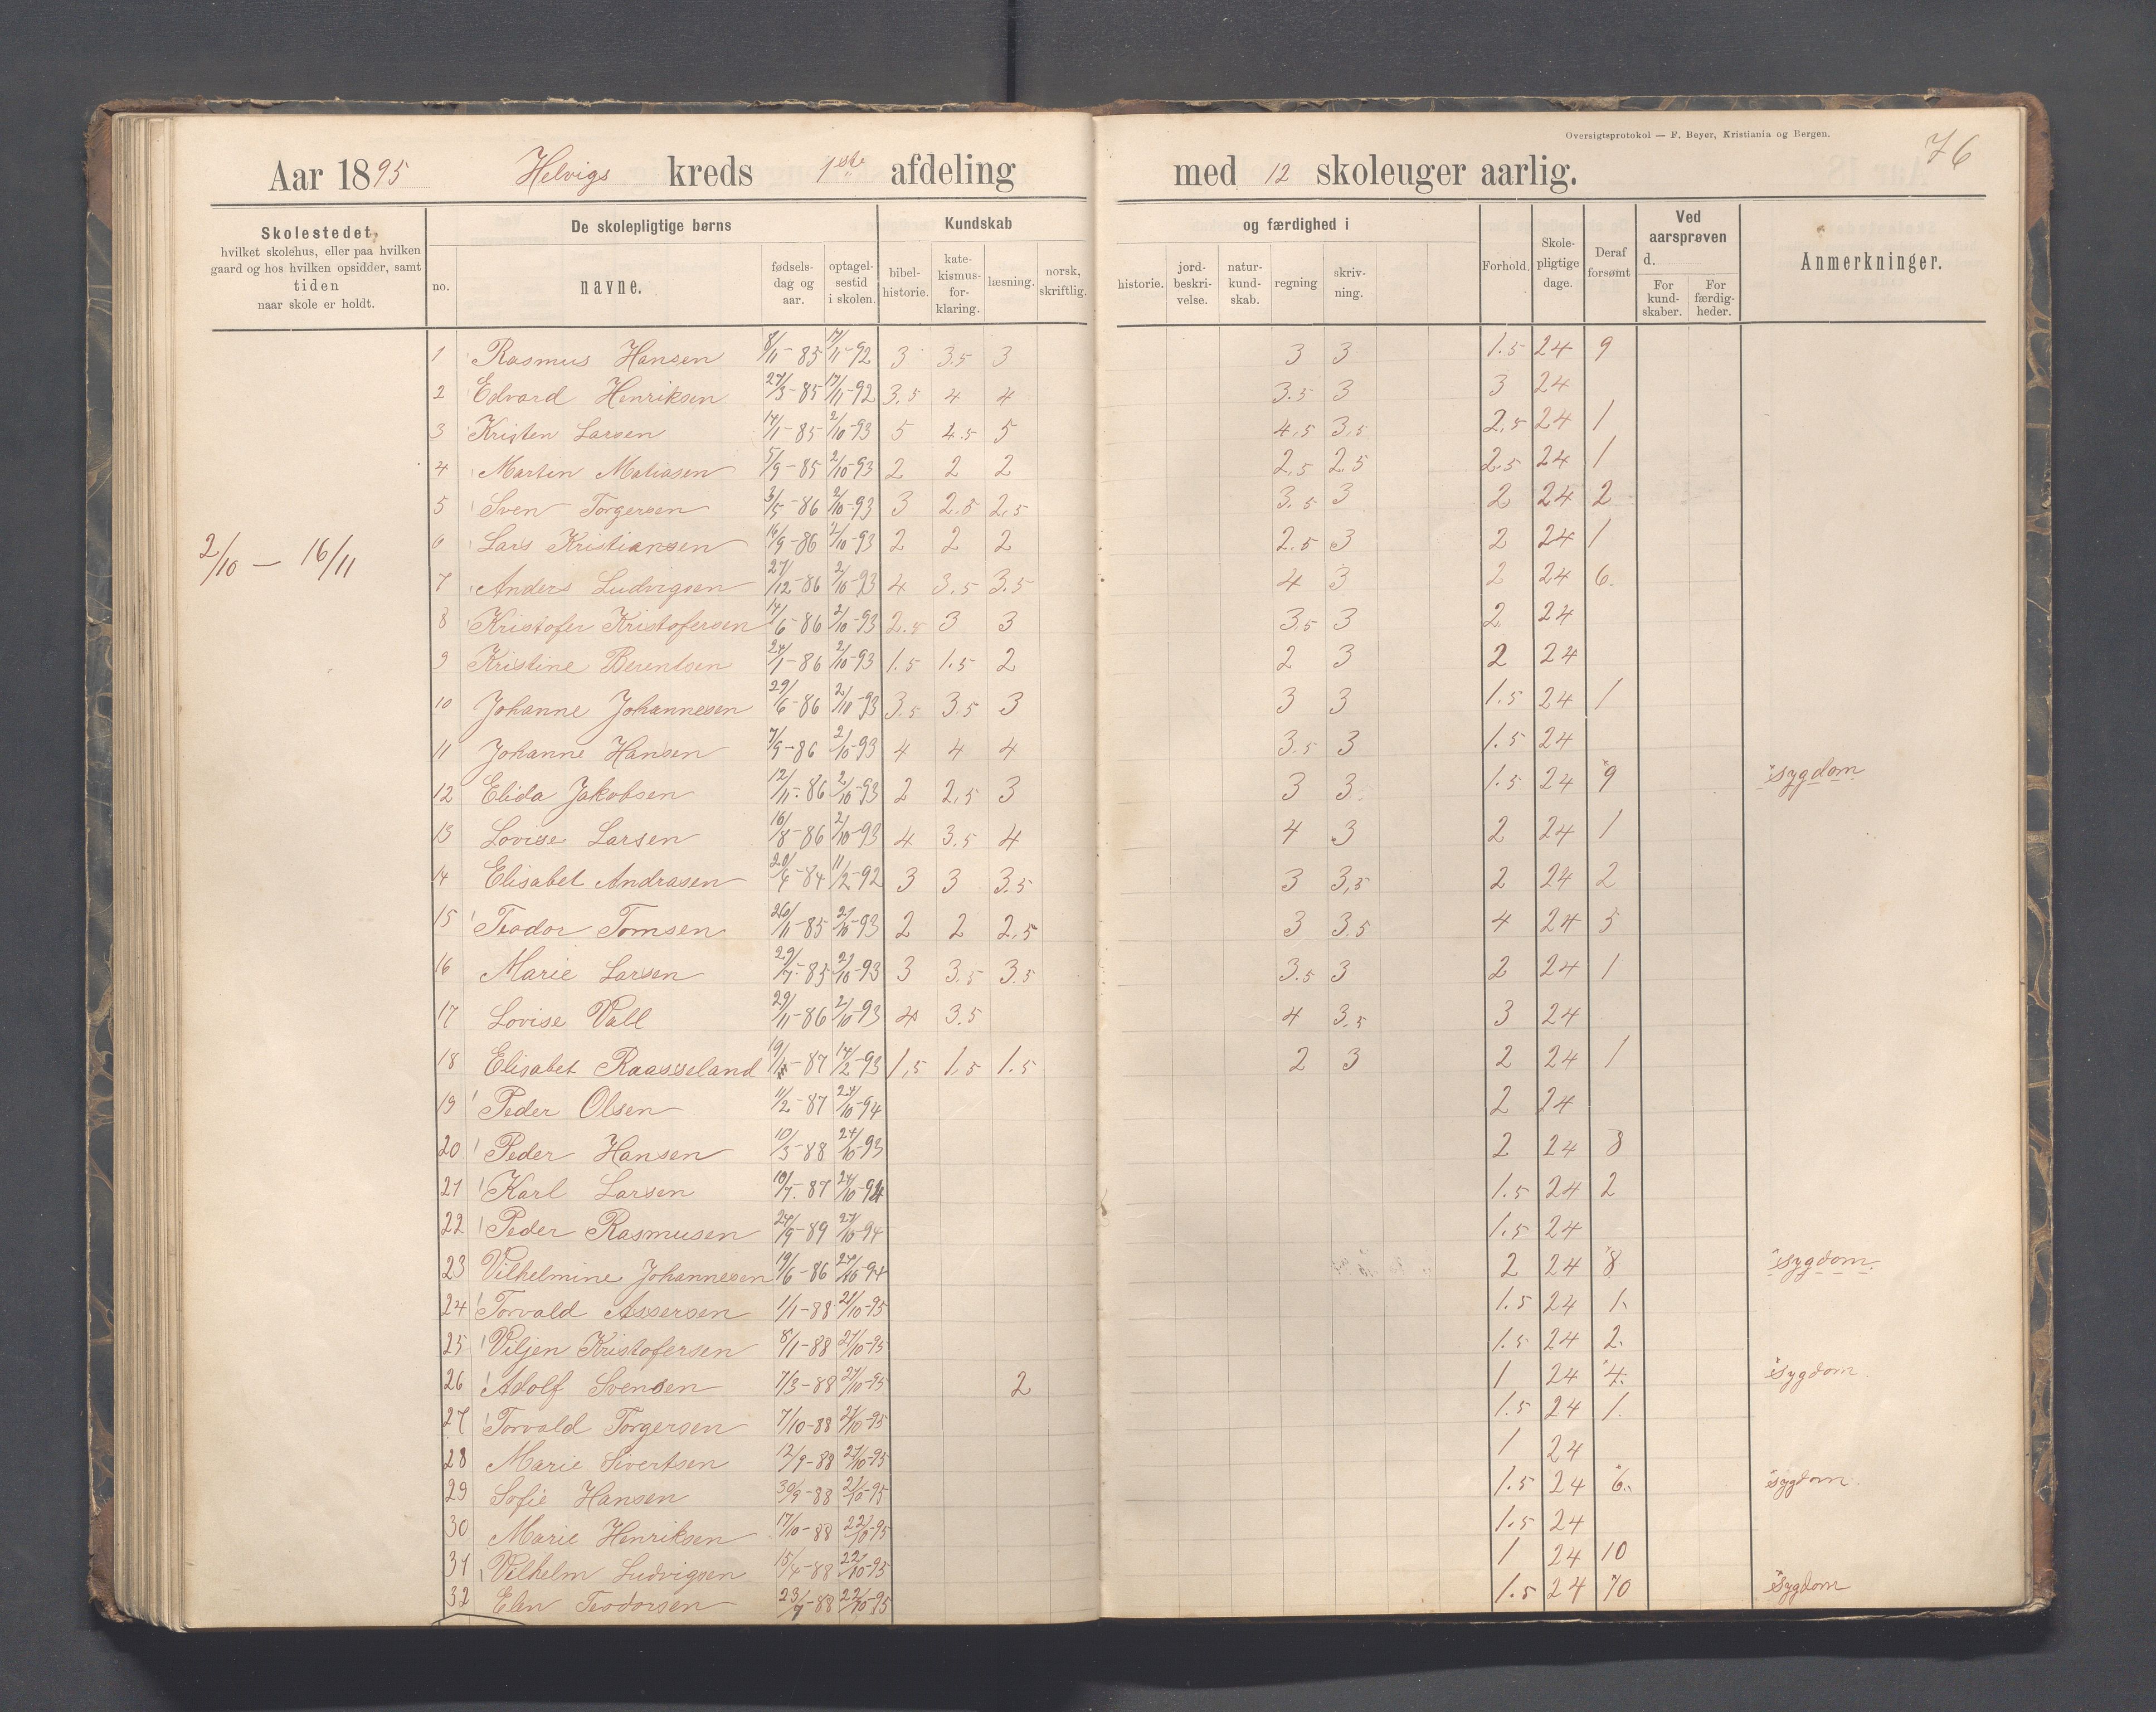 Oversigtsprotokol — F. Beyer, Kristiania og Bergen.
76
Aar 1895 Helvigs kreds 1ste afdeling med 12 skoleuger aarlig.
Skolestedet, hvilket skolehus, eller paa hvilken gaard og hos hvilken opsidder, samt tiden naar skole er holdt.
De skolepligtige børns
no. navne. fødselsdag og aar. optagelsestid i skolen.
Kundskab og færdighed i
bibelhistorie. katekismusforklaring. læsning. norsk, skriftlig. historie. jordbeskrivelse. naturkundskab. regning skrivning.
Forhold. Skolepligtige dage. Deraf forsømt
Ved aarsprøven d.
For kundskaber. For færdigheder.
Anmerkninger.
2/10 — 16/11
1 Rasmus Hansen 8/11-85 17/11-92 3 3.5 3 3 3 1.5 24 9
2 Edvard Henriksen 27/3-85 17/11-92 3.5 4 4 3.5 3 3 24
3 Kristen Larsen 14/1-85 2/10-93 5 4.5 5 4.5 3,5 2,5 24 1
4 Marten Matiasen 5/9-85 2/10-93 2 2 2 2,5 2.5 2.5 24 1
5 Sven Torgersen 3/5-86 2/10-93 3 2.5 2,5 3.5 3 2 24 2
6 Lars Kristiansen 16/9-86 2/10-93 2 2 2 2.5 3 2 24 1
7 Anders Ludvigsen 27/12-86 2/10-93 4 3.5 3.5 4 3 2 24 6
8 Kristofer Kristofersen 14/6-86 2/10-93 2.5 3 3 3.5 3 2 24
9 Kristine Berentsen 24/1-86 2/10-93 1.5 1.5 2 2 3 2 24
10 Johanne Johannesen 29/6-86 2/10-93 3.5 3.5 3 3 3 1.5 24 1
11 Johanne Hansen 7/9-86 2/10-93 4 4 4 3.5 3 1.5 24
12 Elida Jakobsen 12/11-86 2/10-93 2 2,5 3 3 3 1.5 24 9 sygdom
13 Lovise Larsen 16/8-86 2/10-93 4 3.5 4 4 3 2 24 1
14 Elisabet Andrasen 20/4-84 11/2-92 3 3 3.5 3 3,5 2 24 2
15 Teodor Tomsen 26/11-85 2/10-93 2 2 2,5 3 3.5 4 24 5
16 Marie Larsen 29/7-85 2/10-93 3 3.5 3.5 3.5 3 2 24 1
17 Lovise Vall 29/11-86 2/10-93 4 3.5 4 3.5 3 24
18 Elisabet Raasseland 19/5-87 14/2-93 1,5 1,5 1.5 2 3 2 24 1
19 Peder Olsen 11/2-87 24/10-94 2 24
20 Peder Hansen 10/3-88 24/10-93 2 24 8
21 Karl Larsen 10/7-87 24/10-94 1.5 24 2
22 Peder Rasmusen 24/9-89 24/10-94 1.5 24
23 Vilhelmine Johannesen 19/6-86 24/10-94 2 24 8 sygdom.
24 Torvald Assersen 1/1-88 21/10-95 1.5 24 1
25 Viljen Kristofersen 8/1-88 21/10-95 1.5 24 2
26 Adolf Svensen 7/3-88 21/10-95 2 1 24 4 sygdom
27 Torvald Torgersen 7/10-88 21/10-95 1.5 24 1.
28 Marie Sivertsen 12/9-88 21/10-95 1 24
29 Sofie Hansen 30/9-88 21/10-95 1.5 24 6 sygdom
30 Marie Henriksen 17/10-88 22/10-95 1.5 24
31 Vilhelm Ludvigsen 15/4-88 22/10-95 1 24 10
32 Elen Teodorsen 23/7-88 22/10-95 1.5 24 10 sygdom